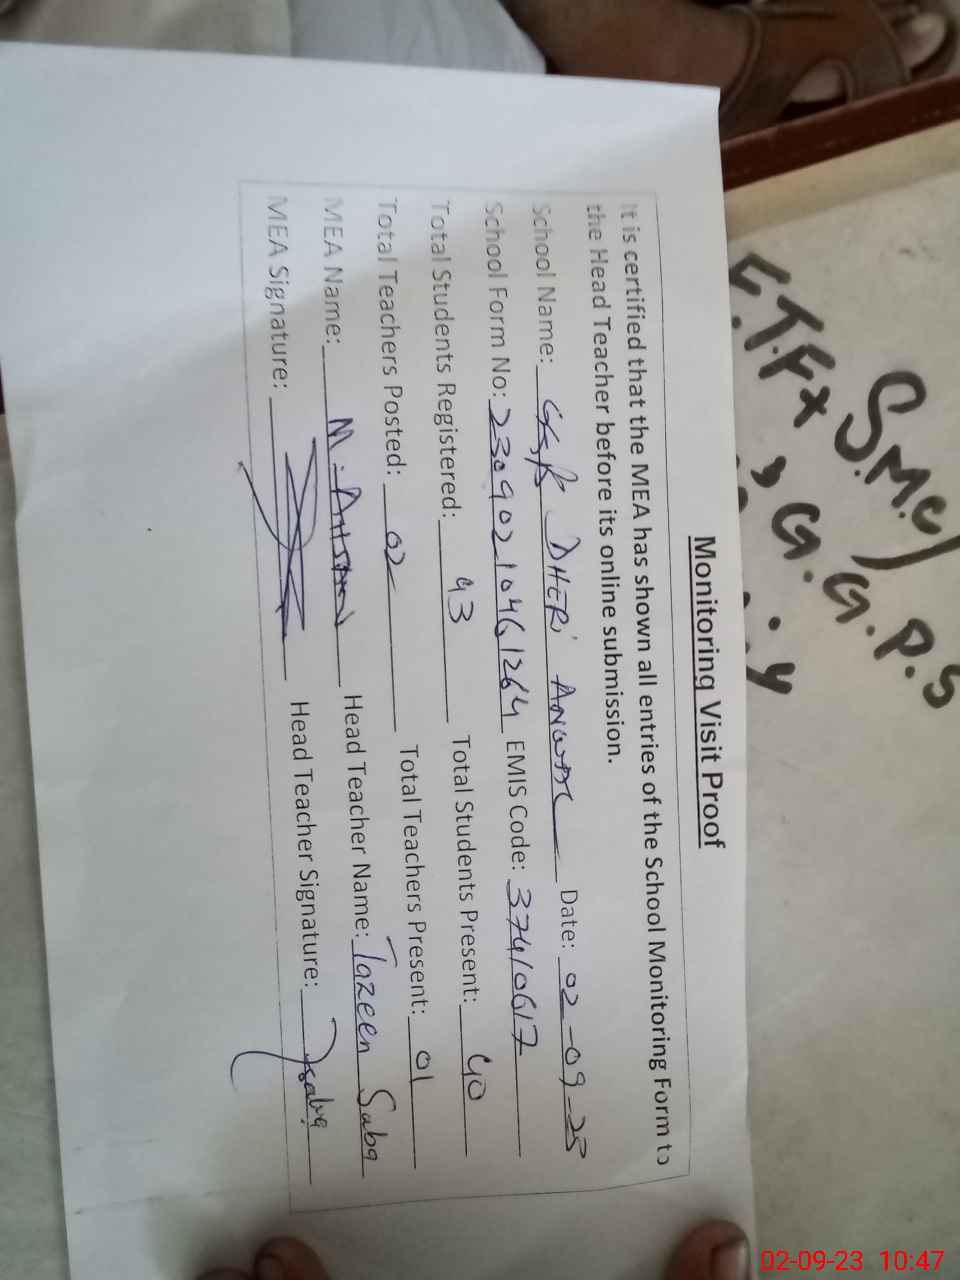 Monitoring Visit Proof
It is certified that the MEA has shown all entries of the School Monitoring Form to
the Head Teacher before its online submission.
School Name: DHERi ANWAR Date: 02-09-23
School Form No: 23090210461264 EMIS Code: 37410617
Total Students Registered: 43 Total Students Present: 40
Total Teachers Posted: 02 Total Teachers Present: 01
MEA Name: M. AHSAN Head Teacher Name: Tazeen Saba
MEA Signature: Head Teacher Signature: Tsaba
S.M.C/
G.G.P.S
02-09-23 10:47